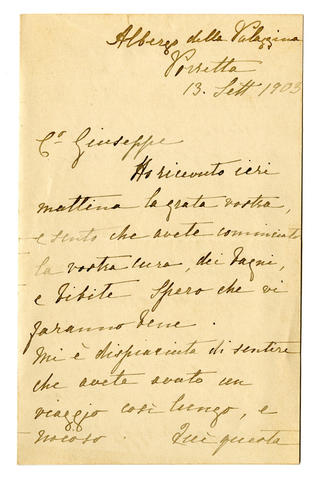 Albergo della Palazzina
Porretta
13. Sett 1903
Co. Giuseppe
Ho ricevuto ieri
mattina la grata vostra,
e sento che avete cominciato
la vostra cura, dei bagni,
e bibite Spero che vi
faranno bene.
Mi è dispiaciuta di sentire
che avete avuto un
viaggio così lungo, e
noioso. Qui questa